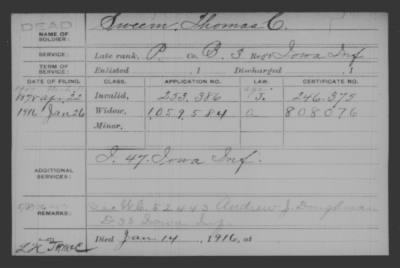 DEAD
NAME OF SOLDIER: Sweem, Thomas C.
SERVICE: Late rank, P. Co. B, 3 Reg't Iowa Inf
TERM OF SERVICE: Enlisted , 1 Discharged , 1
DATE OF FILING. CLASS. APPLICATION NO. LAW. CERTIFICATE NO.
Apr. 22 Invalid, 253.386 246.375
1916 Jan 26 Widow, 1059.584 a 808076
Minor,
ADDITIONAL SERVICES: I. 47. Iowa Inf.
REMARKS: 52443 Andrew J.
D 33 Iowa Inf
Died Jan 14, 1916, at